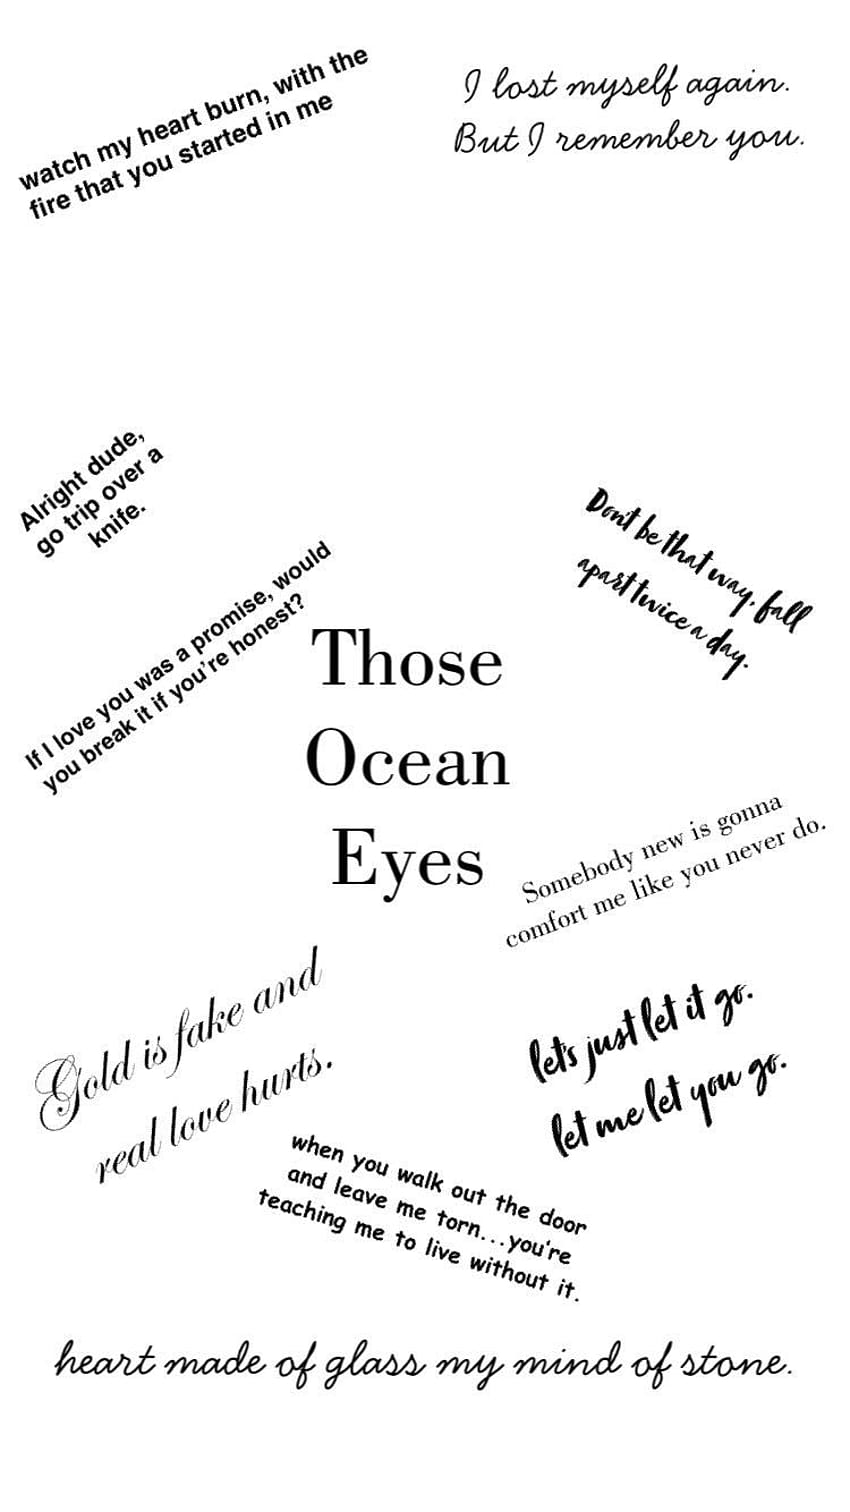 watch my heart burn, with the
fire that you started in me
I lost myself again.
But I remember you.
Alright dude,
go trip over a
knife.
Don't be that way. fall
apart twice a day.
If I love you was a promise, would
you break it if you're honest?
Those
Ocean
Eyes
Somebody new is gonna
comfort me like you never do.
Gold is fake and
real love hurts.
let's just let it go.
let me let you go.
when you walk out the door
and leave me torn...you're
teaching me to live without it.
heart made of glass my mind of stone.